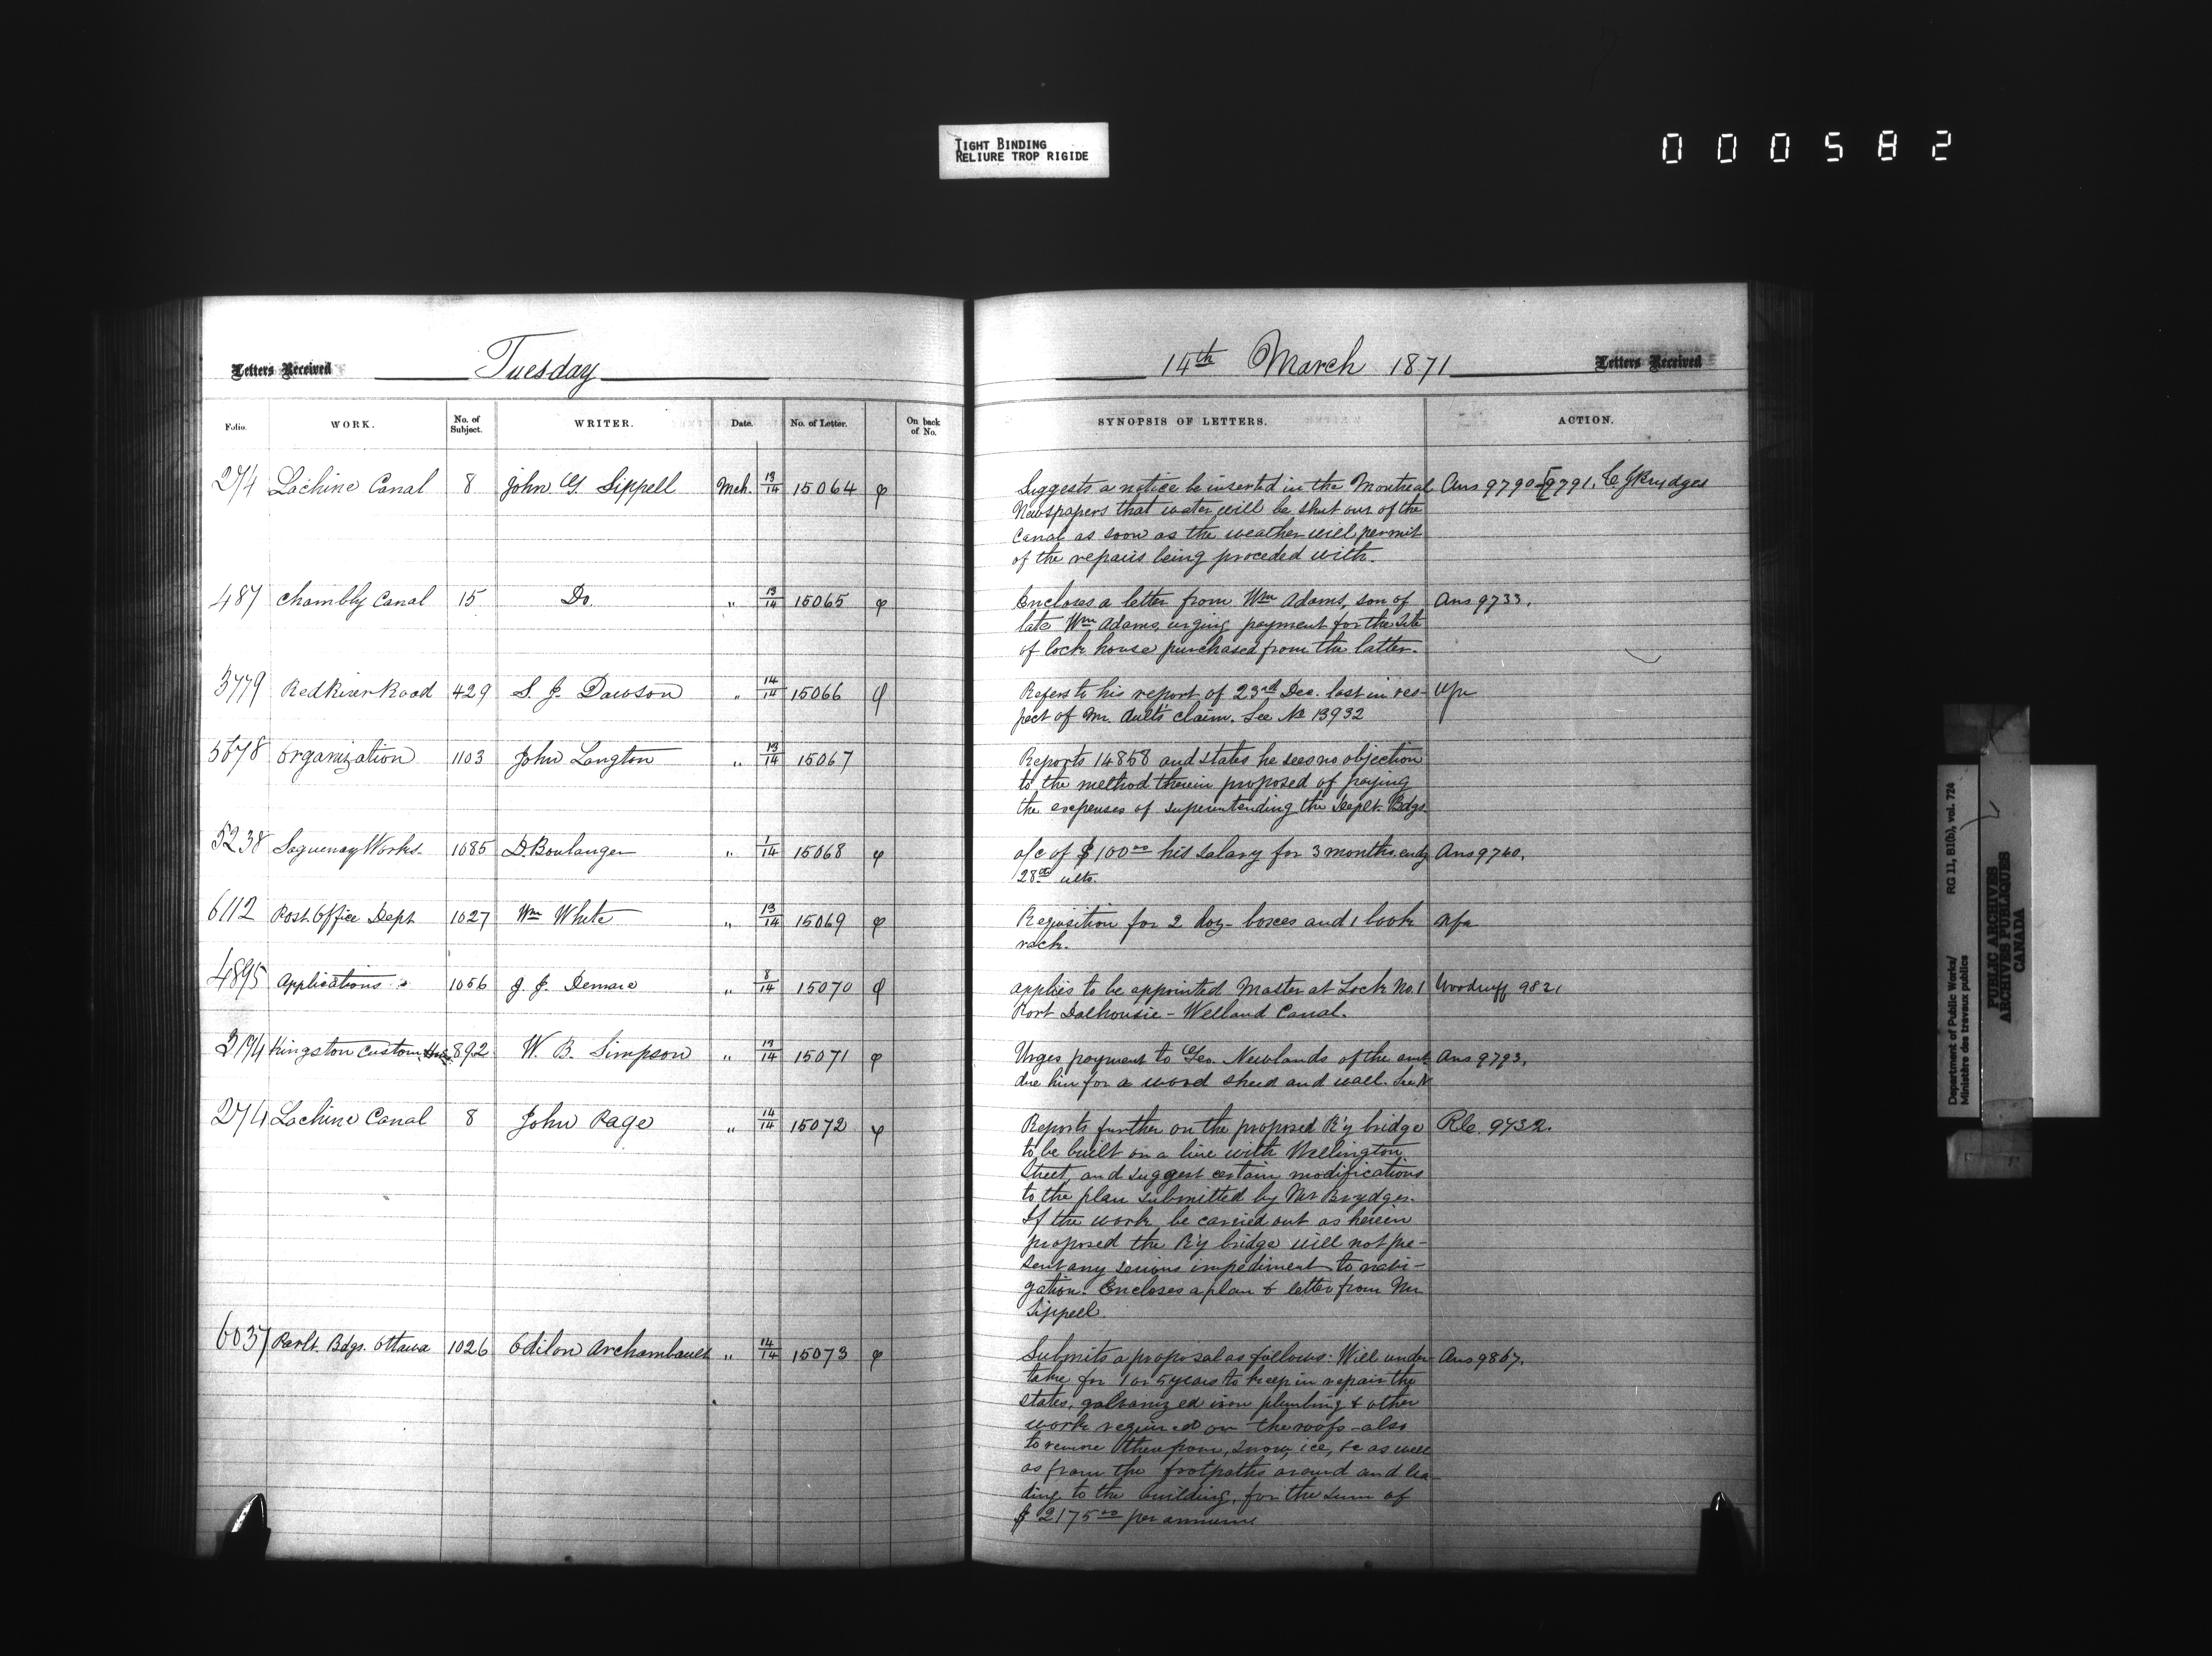 TIGHT BINDING
RELIURE TROP RIGIDE
000582
Letters Received Tuesday
Folio. WORK. No. of Subject. WRITER. Date. No. of Letter. On back of No.
274 Lachine Canal 8 John G. Sippell Mch. 13/14 15064 φ
487 Chambly Canal 15 Do. " 13/14 15065 φ
3779 Red River Road 429 S. J. Dawson " 14/14 15066 φ
5678 Organization 1103 John Langton " 13/14 15067
5238 Saguenay Works. 1085 D. Boulanger " 1/14 15068 φ
6112 Post Office Dept 1027 Wm White " 13/14 15069 φ
4895 Applications 1056 J. J. Demare " 8/14 15070 φ
3174 Kingston Custom Hse 892 W. B. Simpson " 13/14 15071 φ
274 Lachine Canal 8 John Page " 14/14 15072 φ
6037 Parlt. Bdgs. Ottawa 1026 Odilon Archambault " 14/14 15073 φ
14th March 1871 Letters Received
SYNOPSIS OF LETTERS. ACTION.
Suggests a notice be inserted in the Montreal Ans 9790 9791. C J Brydges
Newspapers that water will be shut out of the
Canal as soon as the weather will permit
of the repairs being proceded with.
Encloses a letter from Wm Adams, son of Ans 9733.
late Wm Adams, urging payment for the site
of lock house purchased from the latter.
Refers to his report of 23rd Dec. last in res-
pect of Mr. Ault's claim. See No 13932
Reports 14858 and states he sees no objection
to the method therein proposed of paying
the expenses of superintending the Deptl. Bdgs
a/c of $100 00 his salary for 3 months endg Ans 9740.
28th ulto.
Requisition for 2 doz. boxes and 1 book nfa
rack.
applies to be appointed Master at Lock No. 1 Woodruff 9821
Port Dalhousie - Welland Canal.
Urges payment to Geo. Newlands of the amt Ans 9793.
due him for a wood shed and wall. See N
Reports further on the proposed R'y bridge Rlc. 9732.
to be built on a line with Wellington
Street, and suggest certain modifications
to the plan submitted by Mr Brydges.
If the work be carried out as herein
proposed the R'y bridge will not pre-
sent any serious impediment to navi-
gation. Encloses a plan & letter from Mr
Sippell.
Submits a proposal as follows: Will under- Ans 9867.
take for 1 or 5 years to keep in repair the
slates, galvanized iron plumbing & other
work required on the roofs - also
to remove therefrom, snow, ice, &c as well
as from the footpaths around and lea-
ding to the building, for the sum of
$2175 00 per annum
Department of Public Works/ RG 11, B1(b), vol. 724
Ministère des travaux publics
PUBLIC ARCHIVES
ARCHIVES PUBLIQUES
CANADA